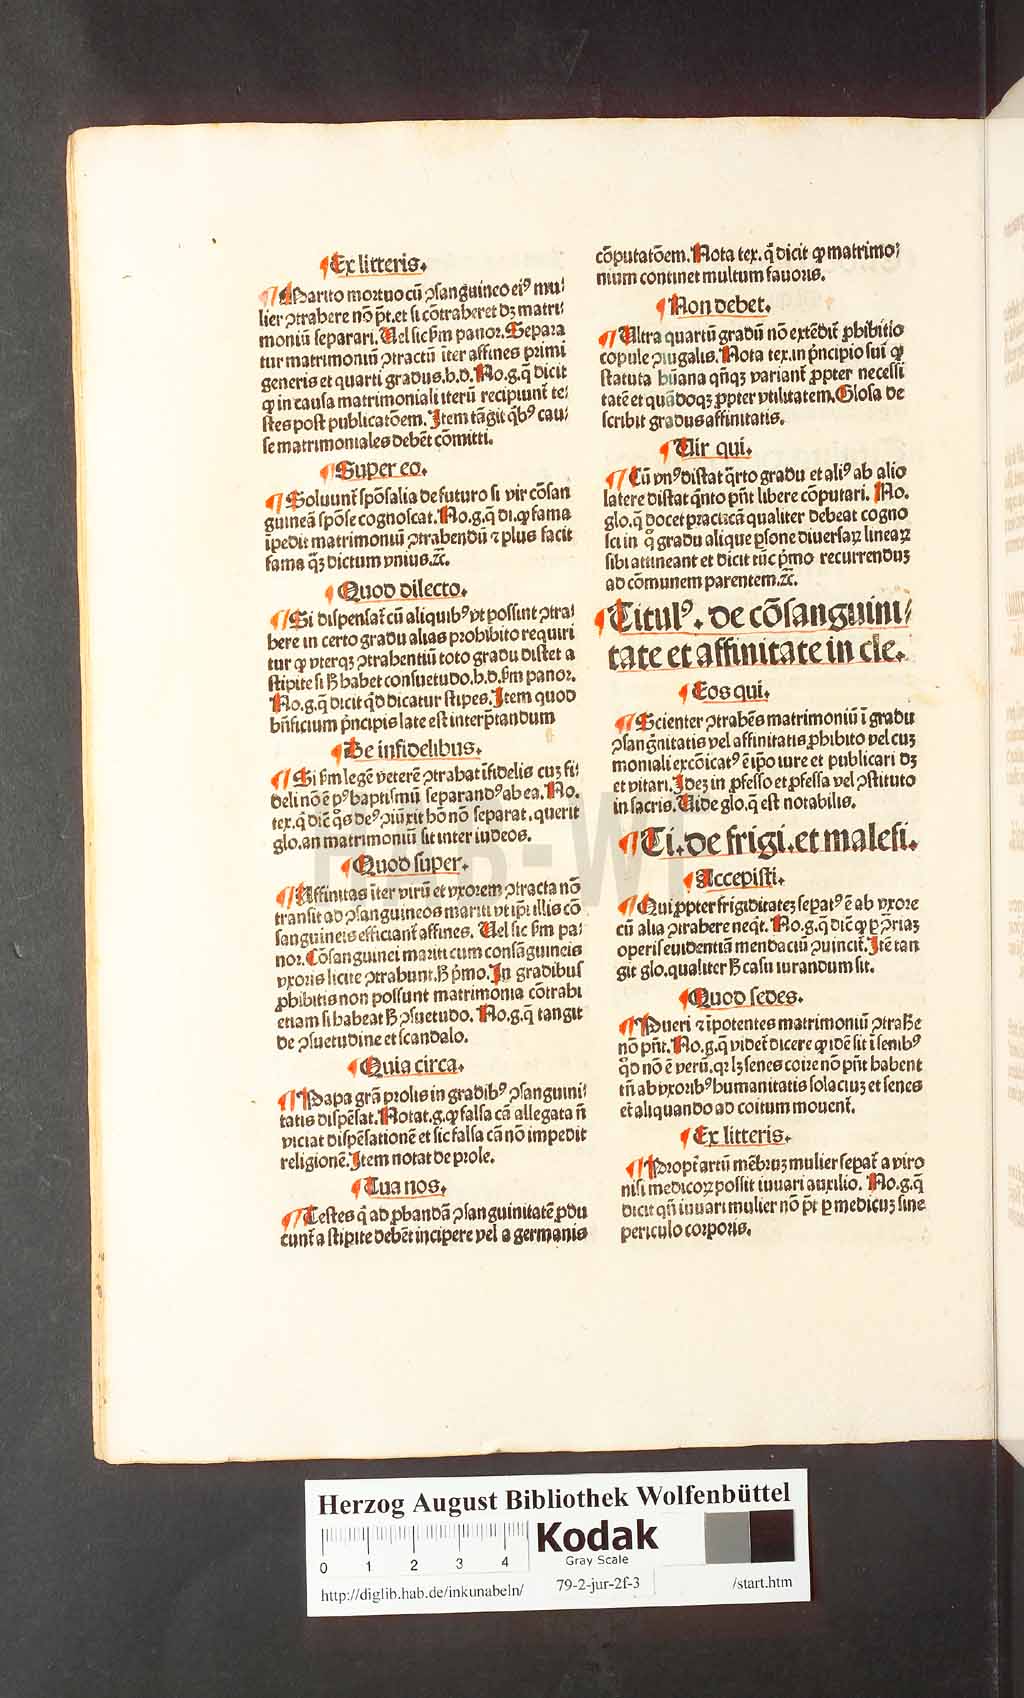 ¶Ex litteris.
¶Marito mortuo cũ ↄsanguineo eiꝰ mu⸗
lier ↄtrahere nõ p̃t.et si cõtraheret dꝫ matri⸗
moniũ separari. Uel sic ẜm panor. Separa
tur matrimoniũ ↄtractũ iter affines primi
generis et quarti gradus.h.d. No.g.q̃ dicit
ꝙ in causa matrimoniali iterũ recipiunt te⸗
stes post publicatõem. Item tãgit qbꝰ cau⸗
se matrimoniales debẽt cõmitti.
¶Super eo.
¶Soluunt̃ spõsalia de futuro si vir cõsan
guineã spõse cognoscat. No.g.q̃ di.ꝙ fama
ĩpedit matrimoniũ ↄtrahendũ ⁊ plus facit
fama q̃ꝫ dictum vnius.ꝛc̃.
¶Quod dilecto.
¶Si dispensat̃ cũ aliquibꝰ vt possint ↄtra⸗
here in certo gradu alias prohibito requiri
tur ꝙ vterqꝫ ↄtrahentiũ toto gradu distet a
stipite si ß habet consuetudo.h.d.ẜm panor.
No.g.q̃ dicit qd̃ dicatur stipes. Item quod
bñficium p̃ncipis late est interp̃tandum
¶De infidelibus.
¶Si ẜm legẽ veterẽ ↄtrahat ĩfidelis cuꝫ fi⸗
deli nõ ẽ pꝰ baptismũ separandꝰ ab ea. No.
tex.q̃ dic̃ q̃s deꝰ ↄiũxit hõ nõ separat. querit
glo.an matrimoniũ sit inter iudeos.
¶Quod super.
¶Affinitas ĩter virũ et vxorem ↄtracta nõ
transit ad ↄsanguineos mariti vt ip̃i illis cõ
sanguineis efficiant̃ affines. Uel sic ẜm pa⸗
nor. Cõsanguinei mariti cum consãguineis
vxoris licite ↄtrahunt.ß p̃mo. In gradibus
ꝓhibitis non possunt matrimonia cõtrahi
etiam si habeat ß ↄsuetudo. No.g.q̃ tangit
de ↄsuetudine et scandalo.
¶Quia circa.
¶Papa grã prolis in gradibꝰ ↄsanguini⸗
tatis dispẽsat. Notat.g.ꝙ falsa cã allegata ñ
viciat dispẽsationẽ et sic falsa cã nõ impedit
religionẽ. Item notat de prole.
¶Tua nos.
¶Testes q̃ ad ꝓbandã ↄsanguinitatẽ ꝓdu
cunt̃ a stipite debẽt incipere vel a germanis
cõputatõem. Nota tex. q̃ dicit ꝙ matrimo⸗
nium continet multum fauoris.
¶Non debet.
¶Ultra quartũ gradũ nõ extẽdit̃ ꝓhibitio
copule ↄiugalis. Nota tex.in p̃ncipio sui q̃
statuta hũana qñqꝫ variant̃ ꝓpter necessi
tatẽ et quãdoqꝫ ꝓpter vtilitatem. Glosa de
scribit gradus affinitatis.
¶Uir qui.
¶Cũ vnꝰ distat q̃rto gradu et aliꝰ ab alio
latere distat q̃nto pñt libere cõputari. No.
glo.q̃ docet practicã qualiter debeat cogno
sci in q̃ gradu alique p̃sone diuersaꝝ lineaꝝ
sibi attineant et dicit tũc p̃mo recurrenduꝫ
ad cõmunem parentem.ꝛc̃.
¶Titulꝰ. de cõsanguini⸗
tate et affinitate in cle.
¶Eos qui.
¶Scienter ↄtrahẽs matrimoniũ ĩ gradu
ↄsang̃nitatis vel affinitatis ꝓhibito vel cuꝫ
moniali excõicatꝰ ẽ ip̃o iure et publicari dꝫ
et vitari. Ideꝫ in ꝓfesso et ꝓfessa vel ↄstituto
in sacris. Uide glo.q̃ est notabilis.
¶Ti.de frigi.et malefi.
¶Accepisti.
¶Qui ꝓpter frigiditateꝫ sepatꝰ ẽ ab vxore
cũ alia ↄtrahere neqt̃. No.g.q̃ dic̃ ꝙ ꝑ ↄ̃riaꝫ
operis euidentiam mendaciũ ↄuincit̃. Itẽ tan
git glo.qualiter ß casu iurandum sit.
¶Quod sedes.
¶Pueri ⁊ ĩpotentes matrimoniũ ↄtraħe
nõ pñt. No.g.q̃ videt̃ dicere ꝙ idẽ sit ĩ senibꝰ
qd̃ nõ ẽ verũ.qꝛ lꝫ senes coire nõ pñt habent
tñ ab vxoribꝰ humanitatis solaciuꝫ et senes
et aliquando ad coitum mouent̃.
¶Ex litteris.
¶Propt̃ artũ mẽbruꝫ mulier sepat̃ a viro
nisi medicoꝝ possit iuuari auxilio. No.g.q̃
dicit qñ iuuari mulier nõ p̃t ꝑ medicuꝫ sine
periculo corporis.
HAB-WF
Herzog August Bibliothek Wolfenbüttel
0 1 2 3 4
Kodak
Gray Scale
http://diglib.hab.de/inkunabeln/ 79-2-jur-2f-3 /start.htm